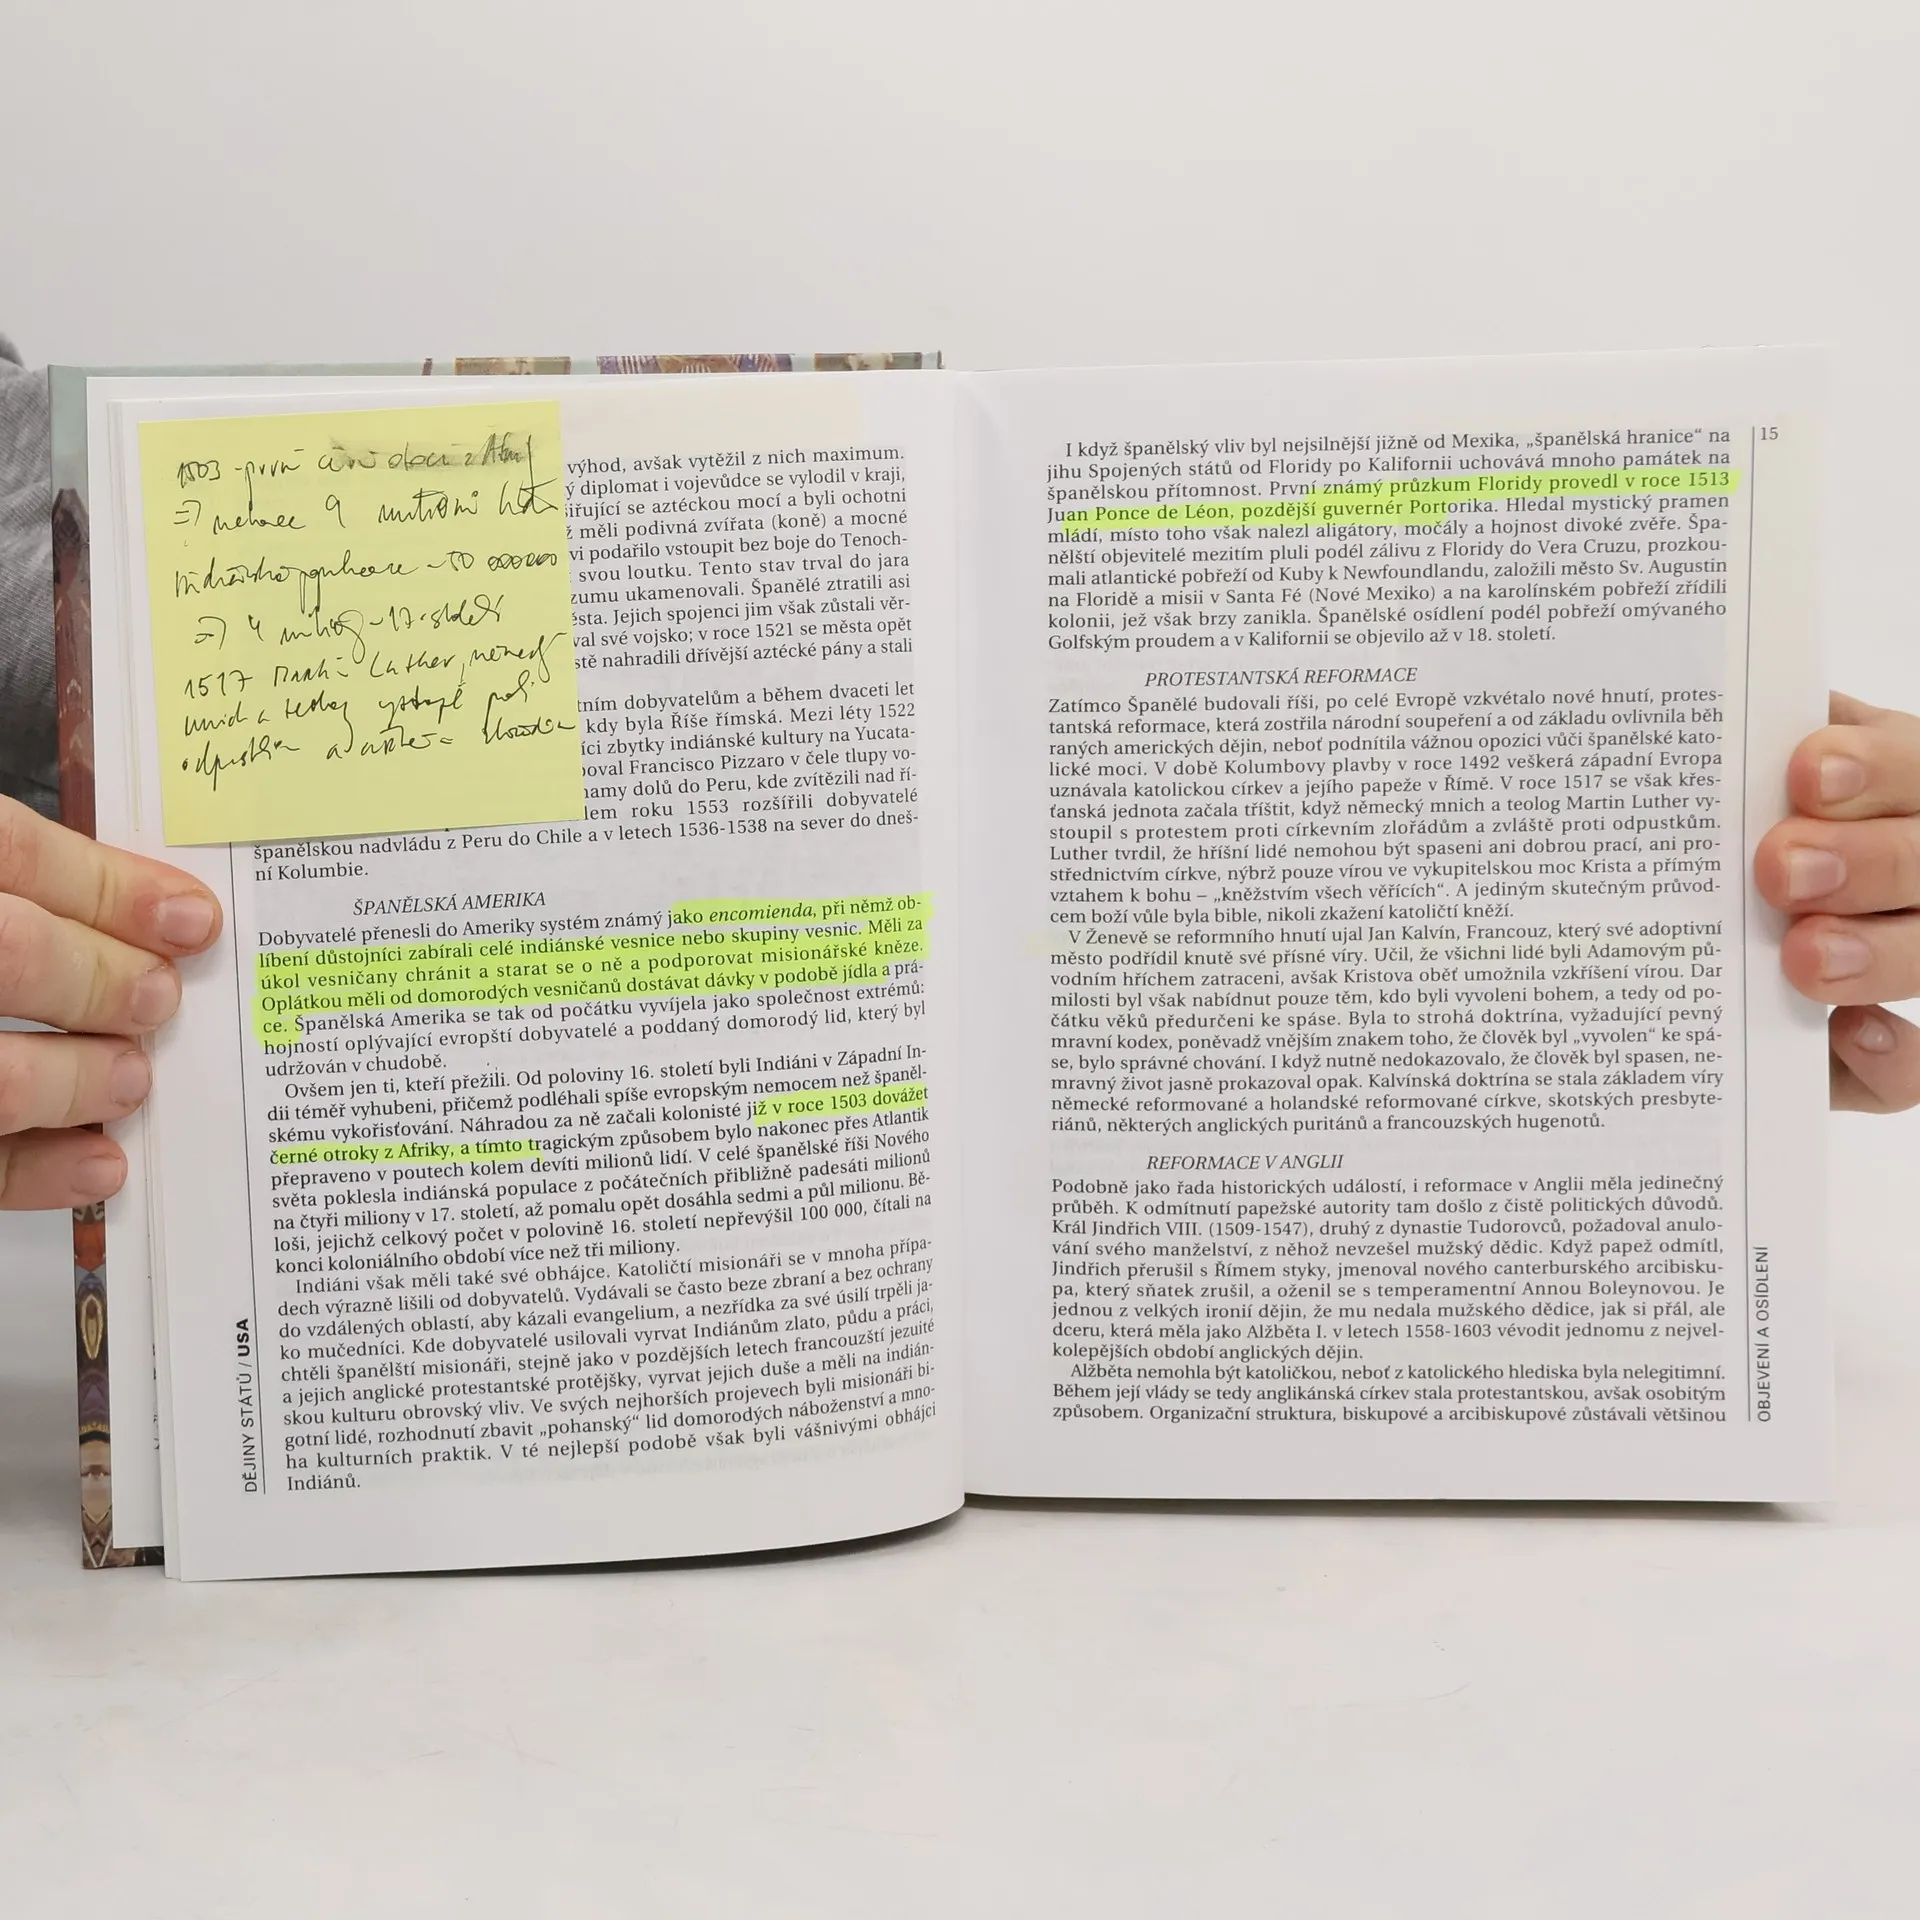 1503 - první
=> 9
- 50 000000
=> 4 - 17.
1517 Luther,
a
výhod, avšak vytěžil z nich maximum.
ý diplomat i vojevůdce se vylodil v kraji,
iřující se aztéckou mocí a byli ochotni
ž měli podivná zvířata (koně) a mocné
vi podařilo vstoupit bez boje do Tenoch-
svou loutku. Tento stav trval do jara
zumu ukamenovali. Španělé ztratili asi
ěsta. Jejich spojenci jim však zůstali věr-
val své vojsko; v roce 1521 se města opět
stě nahradili dřívější aztécké pány a stali
tním dobyvatelům a během dvaceti let
kdy byla Říše římská. Mezi léty 1522
íci zbytky indiánské kultury na Yucata-
poval Francisco Pizzaro v čele tlupy vo-
namy dolů do Peru, kde zvítězili nad ří-
lem roku 1553 rozšířili dobyvatelé
španělskou nadvládu z Peru do Chile a v letech 1536-1538 na sever do dneš-
ní Kolumbie.
ŠPANĚLSKÁ AMERIKA
Dobyvatelé přenesli do Ameriky systém známý jako encomienda, při němž ob-
líbení důstojníci zabírali celé indiánské vesnice nebo skupiny vesnic. Měli za
úkol vesničany chránit a starat se o ně a podporovat misionářské kněze.
Oplátkou měli od domorodých vesničanů dostávat dávky v podobě jídla a prá-
ce. Španělská Amerika se tak od počátku vyvíjela jako společnost extrémů:
hojností oplývající evropští dobyvatelé a poddaný domorodý lid, který byl
udržován v chudobě.
Ovšem jen ti, kteří přežili. Od poloviny 16. století byli Indiáni v Západní In-
dii téměř vyhubeni, přičemž podléhali spíše evropským nemocem než španěl-
skému vykořisťování. Náhradou za ně začali kolonisté již v roce 1503 dovážet
černé otroky z Afriky, a tímto tragickým způsobem bylo nakonec přes Atlantik
přepraveno v poutech kolem devíti milionů lidí. V celé španělské říši Nového
světa poklesla indiánská populace z počátečních přibližně padesáti milionů
na čtyři miliony v 17. století, až pomalu opět dosáhla sedmi a půl milionu. Bě-
loši, jejichž celkový počet v polovině 16. století nepřevýšil 100 000, čítali na
konci koloniálního období více než tři miliony.
Indiáni však měli také své obhájce. Katoličtí misionáři se v mnoha přípa-
dech výrazně lišili od dobyvatelů. Vydávali se často beze zbraní a bez ochrany
do vzdálených oblastí, aby kázali evangelium, a nezřídka za své úsilí trpěli ja-
ko mučedníci. Kde dobyvatelé usilovali vyrvat Indiánům zlato, půdu a práci,
chtěli španělští misionáři, stejně jako v pozdějších letech francouzští jezuité
a jejich anglické protestantské protějšky, vyrvat jejich duše a měli na indián-
skou kulturu obrovský vliv. Ve svých nejhorších projevech byli misionáři bi-
gotní lidé, rozhodnutí zbavit „pohanský“ lid domorodých náboženství a mno-
ha kulturních praktik. V té nejlepší podobě však byli vášnivými obhájci
Indiánů.
DĚJINY STÁTŮ / USA
15
I když španělský vliv byl nejsilnější jižně od Mexika, „španělská hranice“ na
jihu Spojených států od Floridy po Kalifornii uchovává mnoho památek na
španělskou přítomnost. První známý průzkum Floridy provedl v roce 1513
Juan Ponce de Léon, pozdější guvernér Portorika. Hledal mystický pramen
mládí, místo toho však nalezl aligátory, močály a hojnost divoké zvěře. Špa-
nělští objevitelé mezitím pluli podél zálivu z Floridy do Vera Cruzu, prozkou-
mali atlantické pobřeží od Kuby k Newfoundlandu, založili město Sv. Augustin
na Floridě a misii v Santa Fé (Nové Mexiko) a na karolínském pobřeží zřídili
kolonii, jež však brzy zanikla. Španělské osídlení podél pobřeží omývaného
Golfským proudem a v Kalifornii se objevilo až v 18. století.
PROTESTANTSKÁ REFORMACE
Zatímco Španělé budovali říši, po celé Evropě vzkvétalo nové hnutí, protes-
tantská reformace, která zostřila národní soupeření a od základu ovlivnila běh
raných amerických dějin, neboť podnítila vážnou opozici vůči španělské kato-
lické moci. V době Kolumbovy plavby v roce 1492 veškerá západní Evropa
uznávala katolickou církev a jejího papeže v Římě. V roce 1517 se však křes-
ťanská jednota začala tříštit, když německý mnich a teolog Martin Luther vy-
stoupil s protestem proti církevním zlořádům a zvláště proti odpustkům.
Luther tvrdil, že hříšní lidé nemohou být spaseni ani dobrou prací, ani pro-
střednictvím církve, nýbrž pouze vírou ve vykupitelskou moc Krista a přímým
vztahem k bohu – „kněžstvím všech věřících“. A jediným skutečným průvod-
cem boží vůle byla bible, nikoli zkažení katoličtí kněží.
V Ženevě se reformního hnutí ujal Jan Kalvín, Francouz, který své adoptivní
město podřídil knutě své přísné víry. Učil, že všichni lidé byli Adamovým pů-
vodním hříchem zatraceni, avšak Kristova oběť umožnila vzkříšení vírou. Dar
milosti byl však nabídnut pouze těm, kdo byli vyvoleni bohem, a tedy od po-
čátku věků předurčeni ke spáse. Byla to strohá doktrína, vyžadující pevný
mravní kodex, poněvadž vnějším znakem toho, že člověk byl „vyvolen“ ke spá-
se, bylo správné chování. I když nutně nedokazovalo, že člověk byl spasen, ne-
mravný život jasně prokazoval opak. Kalvínská doktrína se stala základem víry
německé reformované a holandské reformované církve, skotských presbyte-
riánů, některých anglických puritánů a francouzských hugenotů.
REFORMACE V ANGLII
Podobně jako řada historických událostí, i reformace v Anglii měla jedinečný
průběh. K odmítnutí papežské autority tam došlo z čistě politických důvodů.
Král Jindřich VIII. (1509-1547), druhý z dynastie Tudorovců, požadoval anulo-
vání svého manželství, z něhož nevzešel mužský dědic. Když papež odmítl,
Jindřich přerušil s Římem styky, jmenoval nového canterburského arcibisku-
pa, který sňatek zrušil, a oženil se s temperamentní Annou Boleynovou. Je
jednou z velkých ironií dějin, že mu nedala mužského dědice, jak si přál, ale
dceru, která měla jako Alžběta I. v letech 1558-1603 vévodit jednomu z nejvel-
kolepějších období anglických dějin.
Alžběta nemohla být katoličkou, neboť z katolického hlediska byla nelegitimní.
Během její vlády se tedy anglikánská církev stala protestantskou, avšak osobitým
způsobem. Organizační struktura, biskupové a arcibiskupové zůstávali většinou
OBJEVENÍ A OSÍDLENÍ